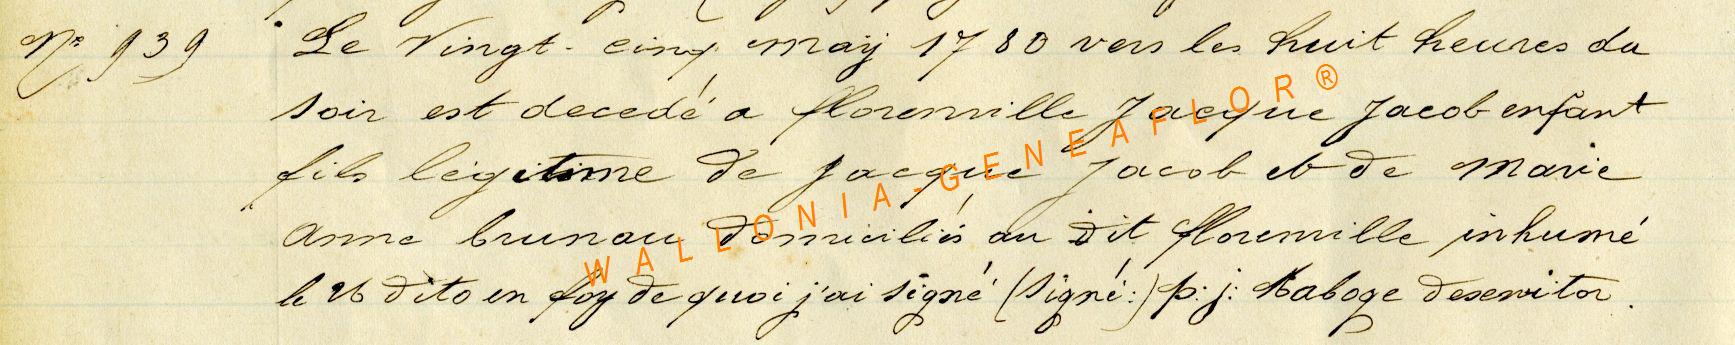 Nº 939 Le Vingt-cinq maÿ 1780 vers les huit heures du
soir est decedé a florenville Jacque Jacob enfant
fils légitime de Jacque Jacob et de Marie
Anne brunau domiciliés au dit florenville inhumé
le 26 dito en foy de quoi j'ai signé (signé:) p: j:
WALLONIA-GENEAFLOR®